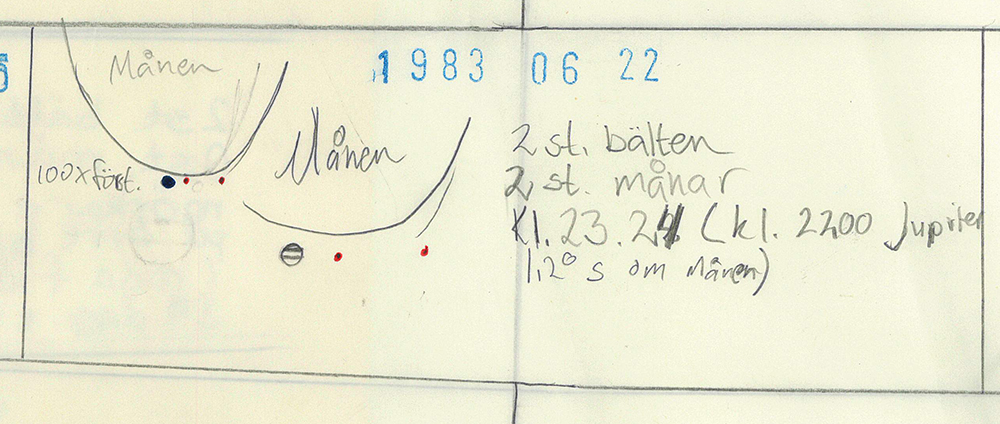 Månen
1983 06 22
Månen
100xförst.
2 st. bälten
2 st. månar
Kl. 23.24 (kl. 2200 Jupiter
1,2° s om Månen)